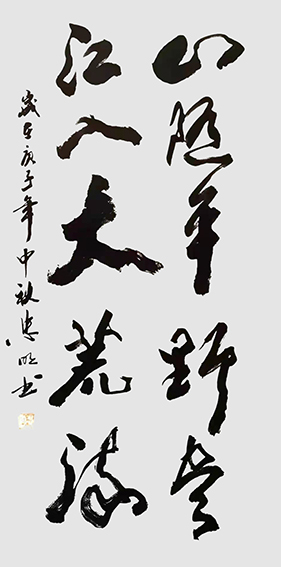 山随平野尽
江入大荒流
歲在庚子年中秋明书